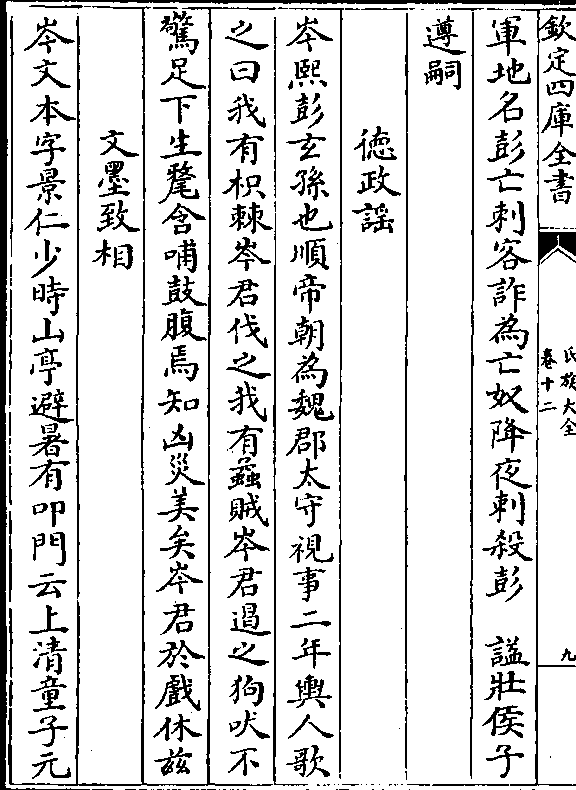 欽定四庫全書
氏族大全
卷十二
九
軍地名彭亡刺客詐為亡奴降夜刺殺彭　謚壯侯子
遵嗣
德政謡
岑熙彭玄孫也順帝朝為魏郡太守視事二年輿人歌
之曰我有枳棘岑君伐之我有蟊賊岑君遏之狗吠不
驚足下生氂含哺鼓腹焉知凶災美矣岑君於戲休兹
文墨致相
岑文本字景仁少時山亭避暑有叩門云上清童子元